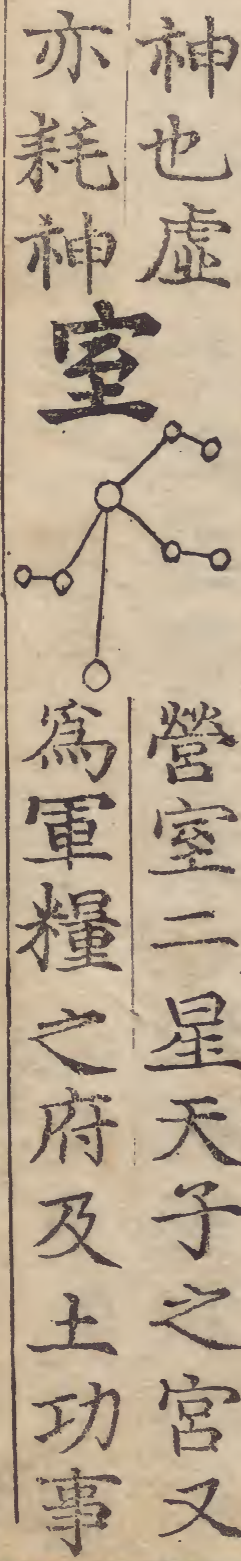 神也虛
亦耗神
室
營室二星天子之宮又
為軍糧之府及土功事